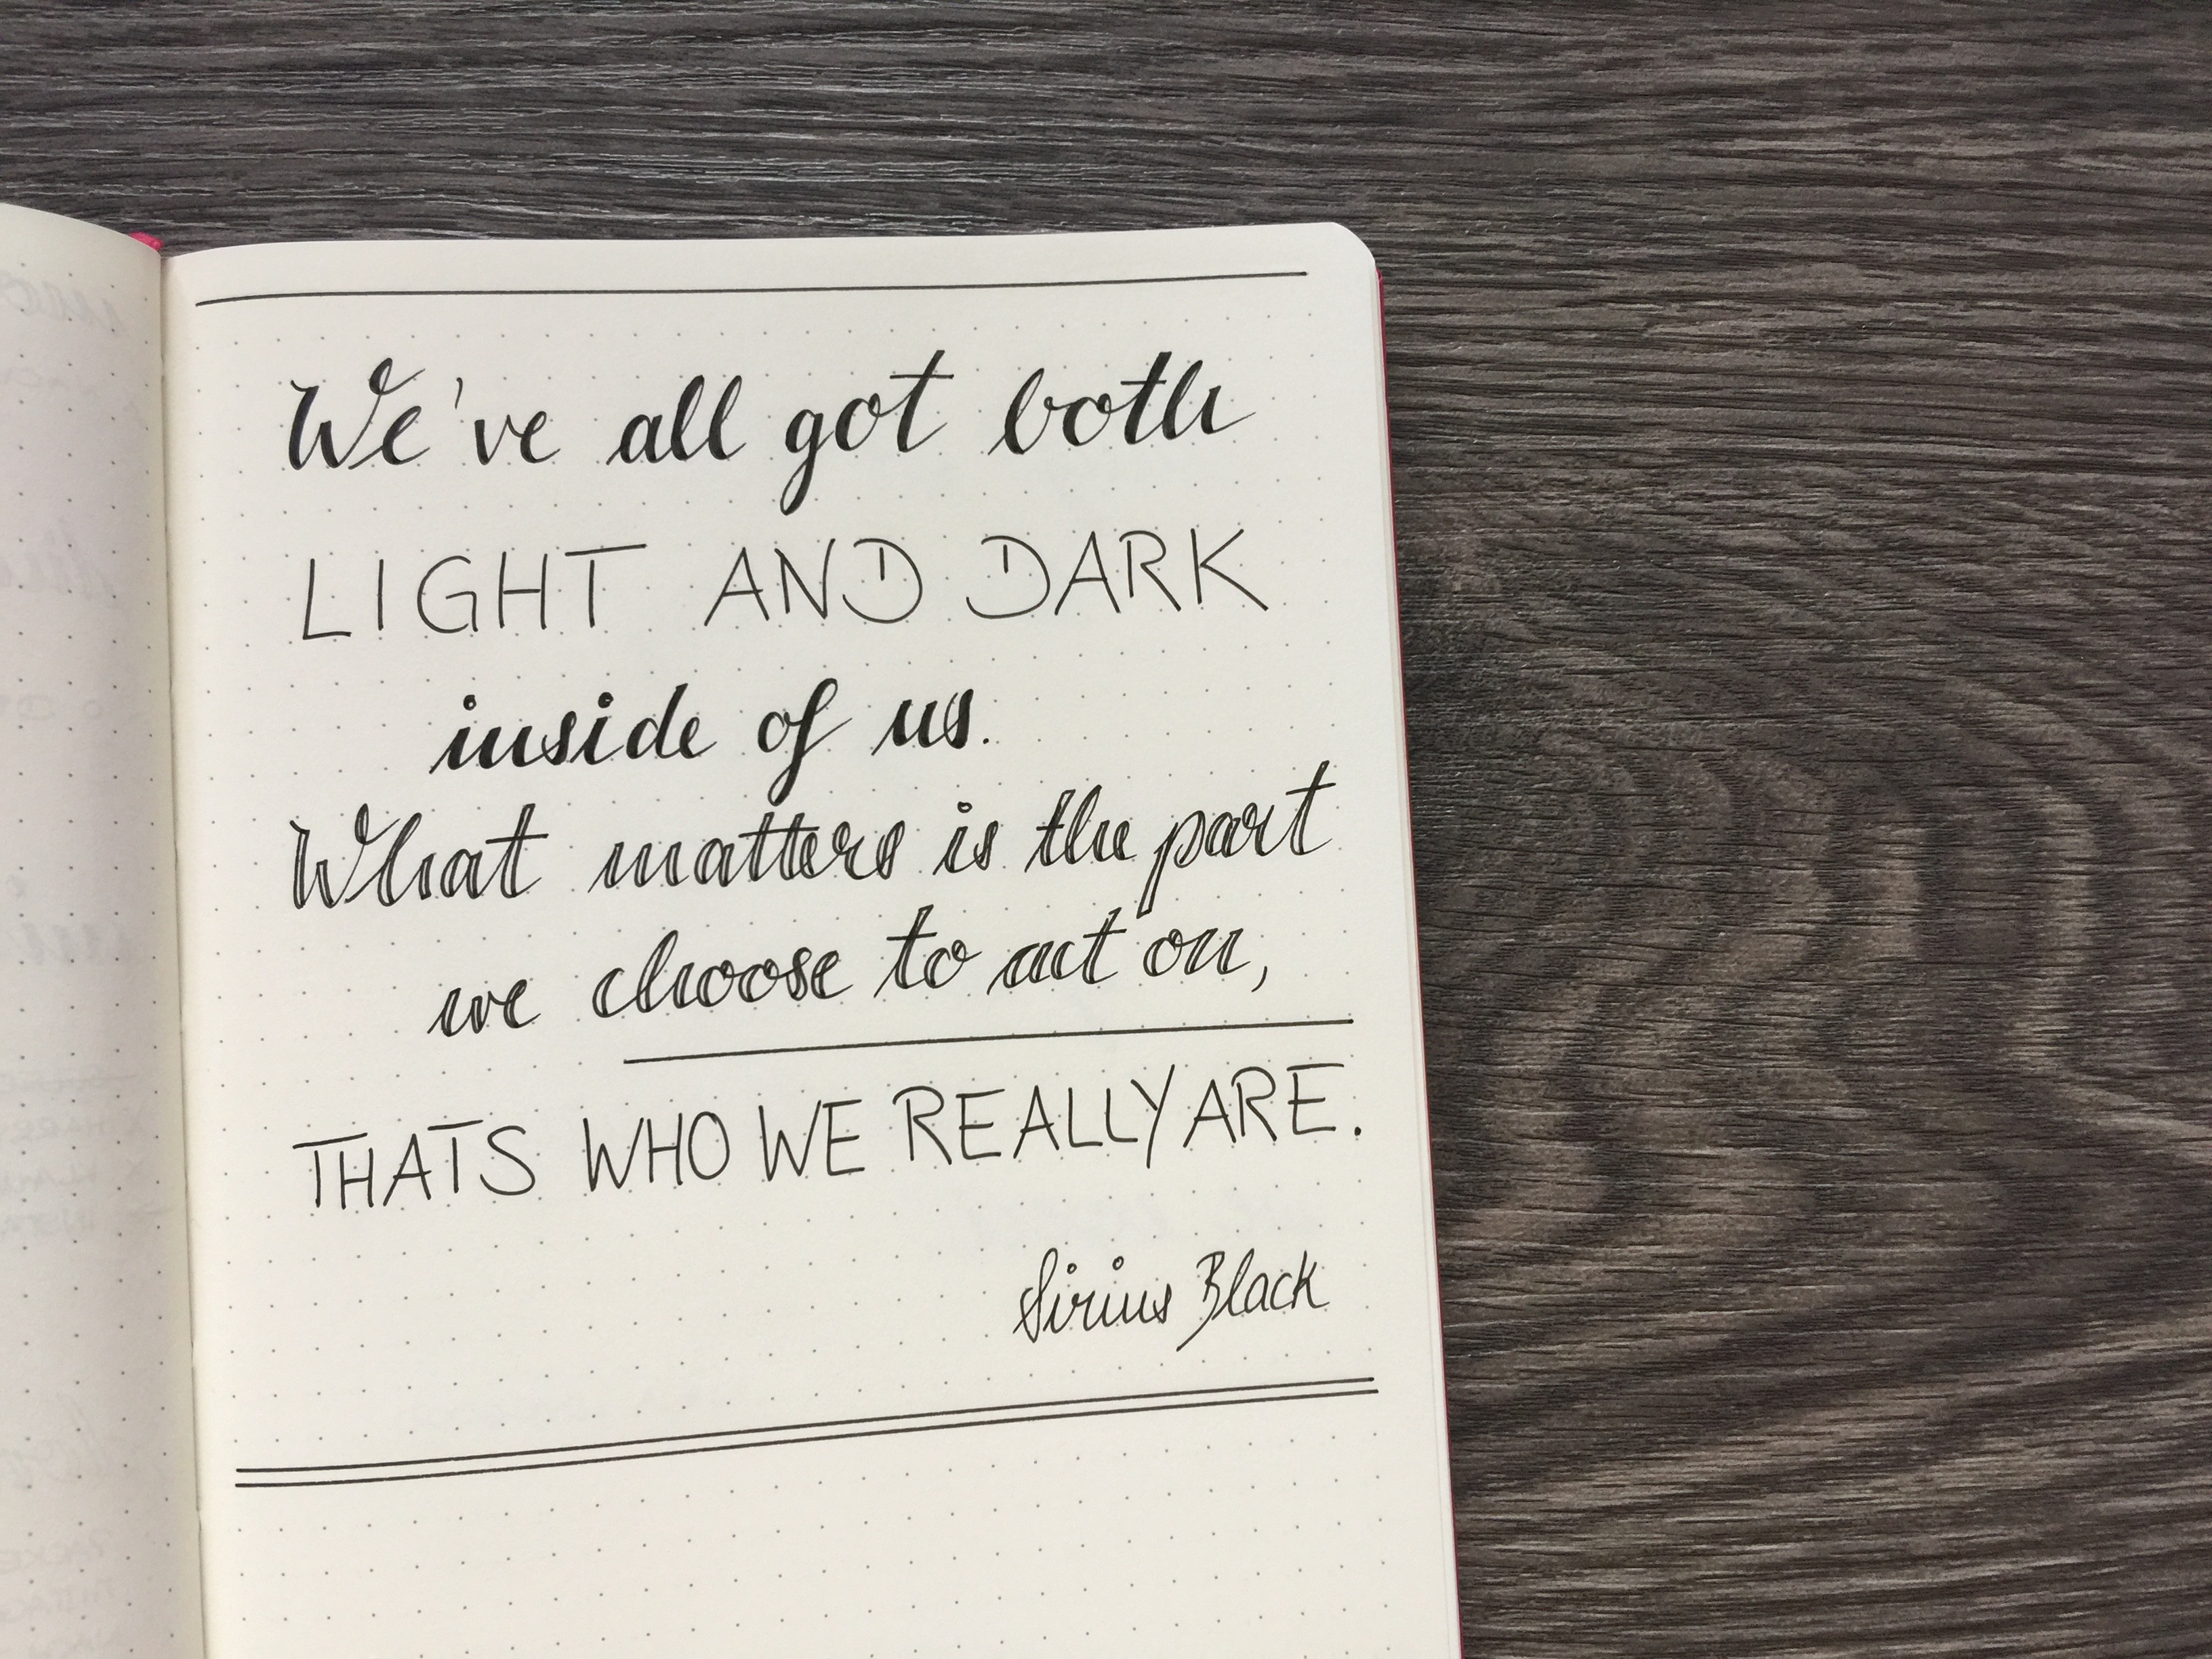 We've all got both
LIGHT AND DARK
inside of us.
What matters is the part
we choose to act on,
THATS WHO WE REALLY ARE.
Sirius Black